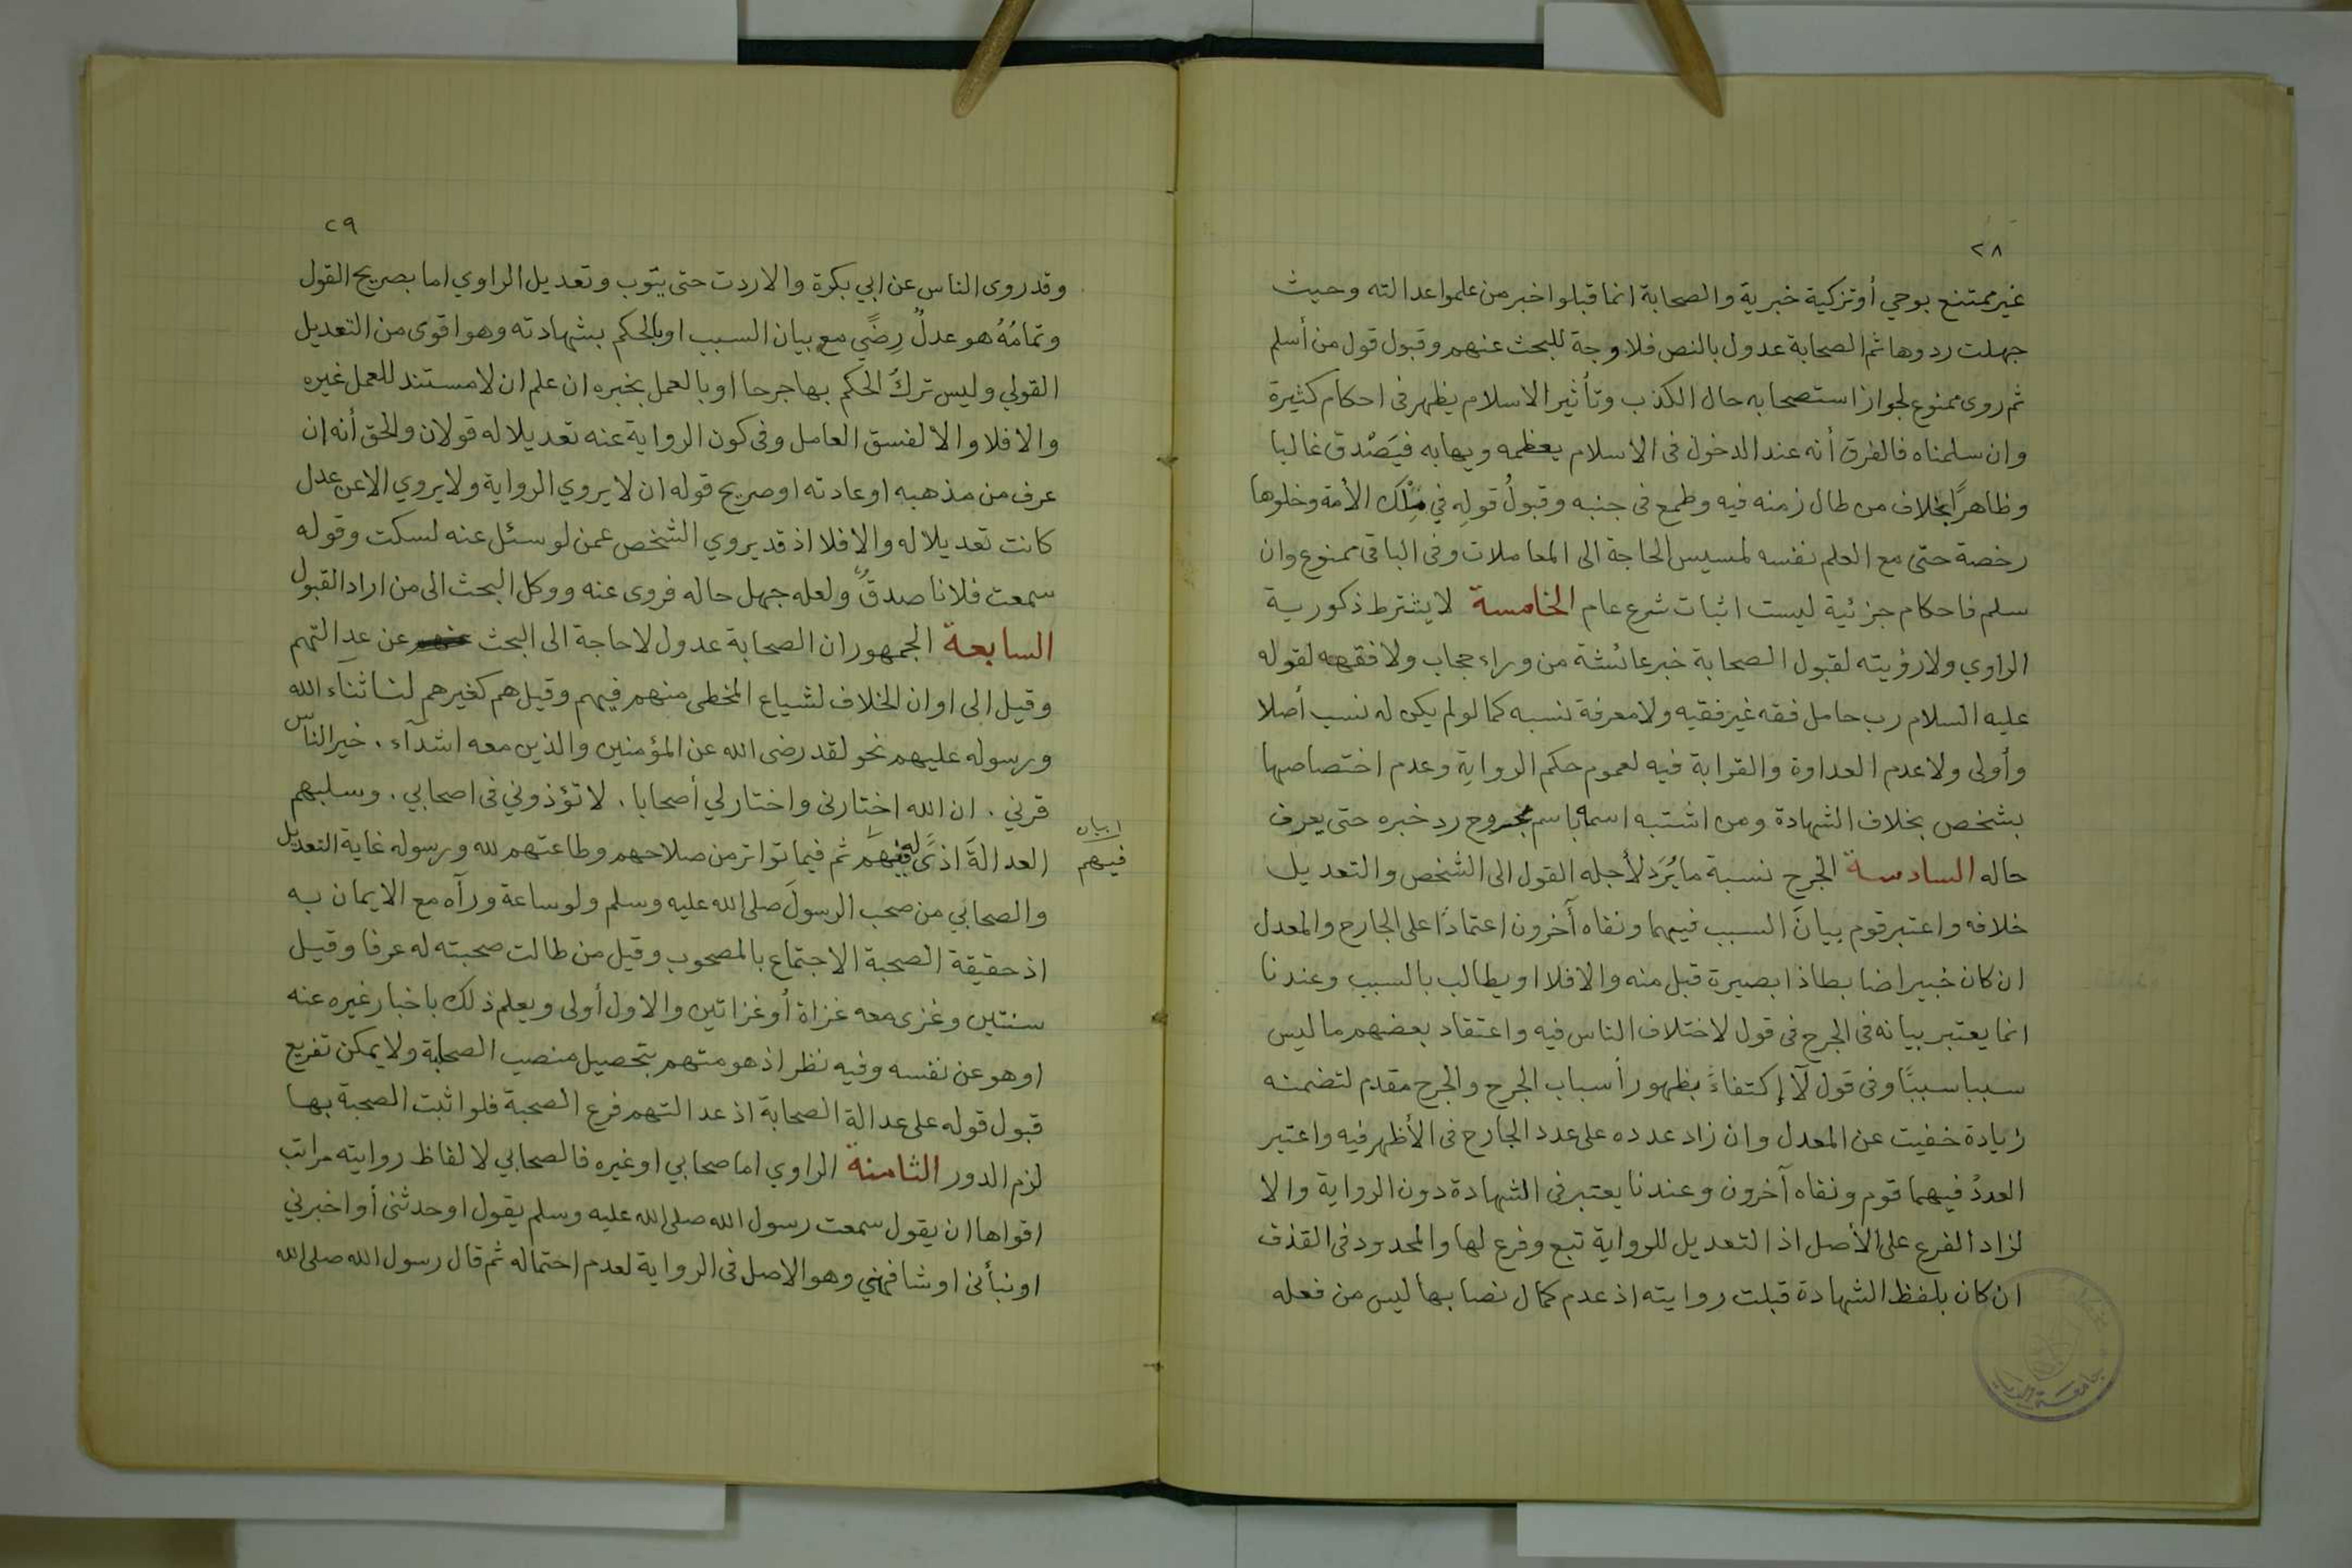 ٢٨
غير ممتنع بوحي أو تزكية خبرية والصحابة انما قبلوا خبر من علموا عدالته وحيث
جهلت ردوها ثم الصحابة عدول بالنص فلا وجة للبحث عنهم وقبول قول من أسلم
ثم روى ممنوع لجواز استصحابه حال الكذب وتأثير الاسلام يظهر فى احكام كثيرة
وان سلمناه فالفرق أنه عند الدخول فى الاسلام يعظمه ويهابه فيَصْدق غالبا
وظاهرًا بخلاف من طال زمنه فيه وطمع فى جنبه وقبولُ قولِه في مِلْك الأمة وخلوها
رخصة حتى مع العلم نفسه لمسيس الحاجة الى المعاملات وفى الباقى ممنوع وان
سلم فاحكام جزئية ليست اثبات شرع عام الخامسة لا يشترط ذكورية
الراوي ولا رؤيته لقبول الصحابة خبر عائشة من وراء حجاب ولا فقهه لقوله
عليه السلام رب حامل فقه غير فقيه ولا معرفة نسبه كما لو لم يكن له نسب أصلا
وأولى ولا عدم العداوة والقرابة فيه لعموم حكم الرواية وعدم اختصاصها
بشخص بخلاف الشهادة ومن اشتبه اسمه باسم مجروح رد خبره حتى يعرف
حاله السادسة الجرح نسبة ما يُرَد لأجله القول الى الشخص والتعديل
خلافه واعتبر قوم بيانَ السبب فيهما ونفاه آخرون اعتمادًا على الجارح والمعدل
ان كان خبيرا ضابطا ذا بصيرة قبل منه والا فلا او يطالب بالسبب وعندنا
انما يعتبر بيانه فى الجرح فى قول لاختلاف الناس فيه واعتقاد بعضهم ما ليس
سببا سببًا وفى قول لآ إكتفاءً بظهور أسباب الجرح والجرح مقدم لتضمنه
زيادة خفيت عن المعدل وان زاد عدده على عدد الجارح فى الأظهر فيه واعتبر
العددُ فيهما قوم ونفاه آخرون وعندنا يعتبر فى الشهادة دون الرواية والا
لزاد الفرع على الأصل اذ التعديل للرواية تبع وفرع لها والمحدود فى القذف
ان كان بلفظ الشهادة قبلت روايته اذ عدم كمال نصابها ليس من فعله
٢٩
وقد روى الناس عن ابي بكرة والا ردت حتى يتوب وتعديل الراوي اما بصريح القول
وتمامُهُ هو عدلٌ رِضًي مع بيان السبب او بالحكم بشهادته وهو اقوى من التعديل
القولي وليس تركُ الحكم بها جرحا او بالعمل بخبره ان علم ان لا مستند للعمل غيره
والا فلا والا لفسق العامل وفى كون الرواية عنه تعديلا له قولان والحق أنه ان
عرف من مذهبه او عادته او صريح قوله ان لا يروي الرواية ولا يروي الا عن عدل
كانت تعديلا له والا فلا اذ قد يروي الشخص عمن لو سئل عنه لسكت وقوله
سمعت فلانا صدقٌ ولعله جهل حاله فروى عنه ووكل البحث الى من اراد القبول
السابعة الجمهور ان الصحابة عدول لا حاجة الى البحث عن عدالتهم
وقيل الى اوان الخلاف لشياع المخطى منهم فيهم وقيل هم كغيرهم لنا ثناء الله
ورسوله عليهم نحو لقد رضى الله عن المؤمنين والذين معه اشدآء . خير الناس
قرني . ان الله اختارنى واختار لي أصحابا . لا تؤذوني فى اصحابي . وسلبهم
العدالةَ اذًى له فيهم ثم فيما تواتر من صلاحهم وطاعتهم لله ورسوله غاية التعديل
ا بيان
فيهم
والصحابي من صحب الرسولَ صلى الله عليه وسلم ولو ساعة ورآه مع الايمان به
اذ حقيقة الصحبة الاجتماع بالمصحوب وقيل من طالت صحبته له عرفا وقيل
سنتين وغزى معه غزاة أو غزاتين والاول أولى ويعلم ذلك باخبار غيره عنه
او هو عن نفسه وفيه نظر اذ هو متهم بتحصيل منصب الصحابة ولا يمكن تفريع
قبول قوله على عدالة الصحابة اذ عدالتهم فرع الصحبة فلو اثبت الصحبة بها
لزم الدور الثامنة الراوي اما صحابي او غيره فالصحابي لالفاظ روايته مراتب
اقواها ان يقول سمعت رسول الله صلى الله عليه وسلم يقول او حدثنى أو اخبرني
او نبأنى او شافهني وهو الاصل فى الرواية لعدم احتماله ثم قال رسول الله صلى الله